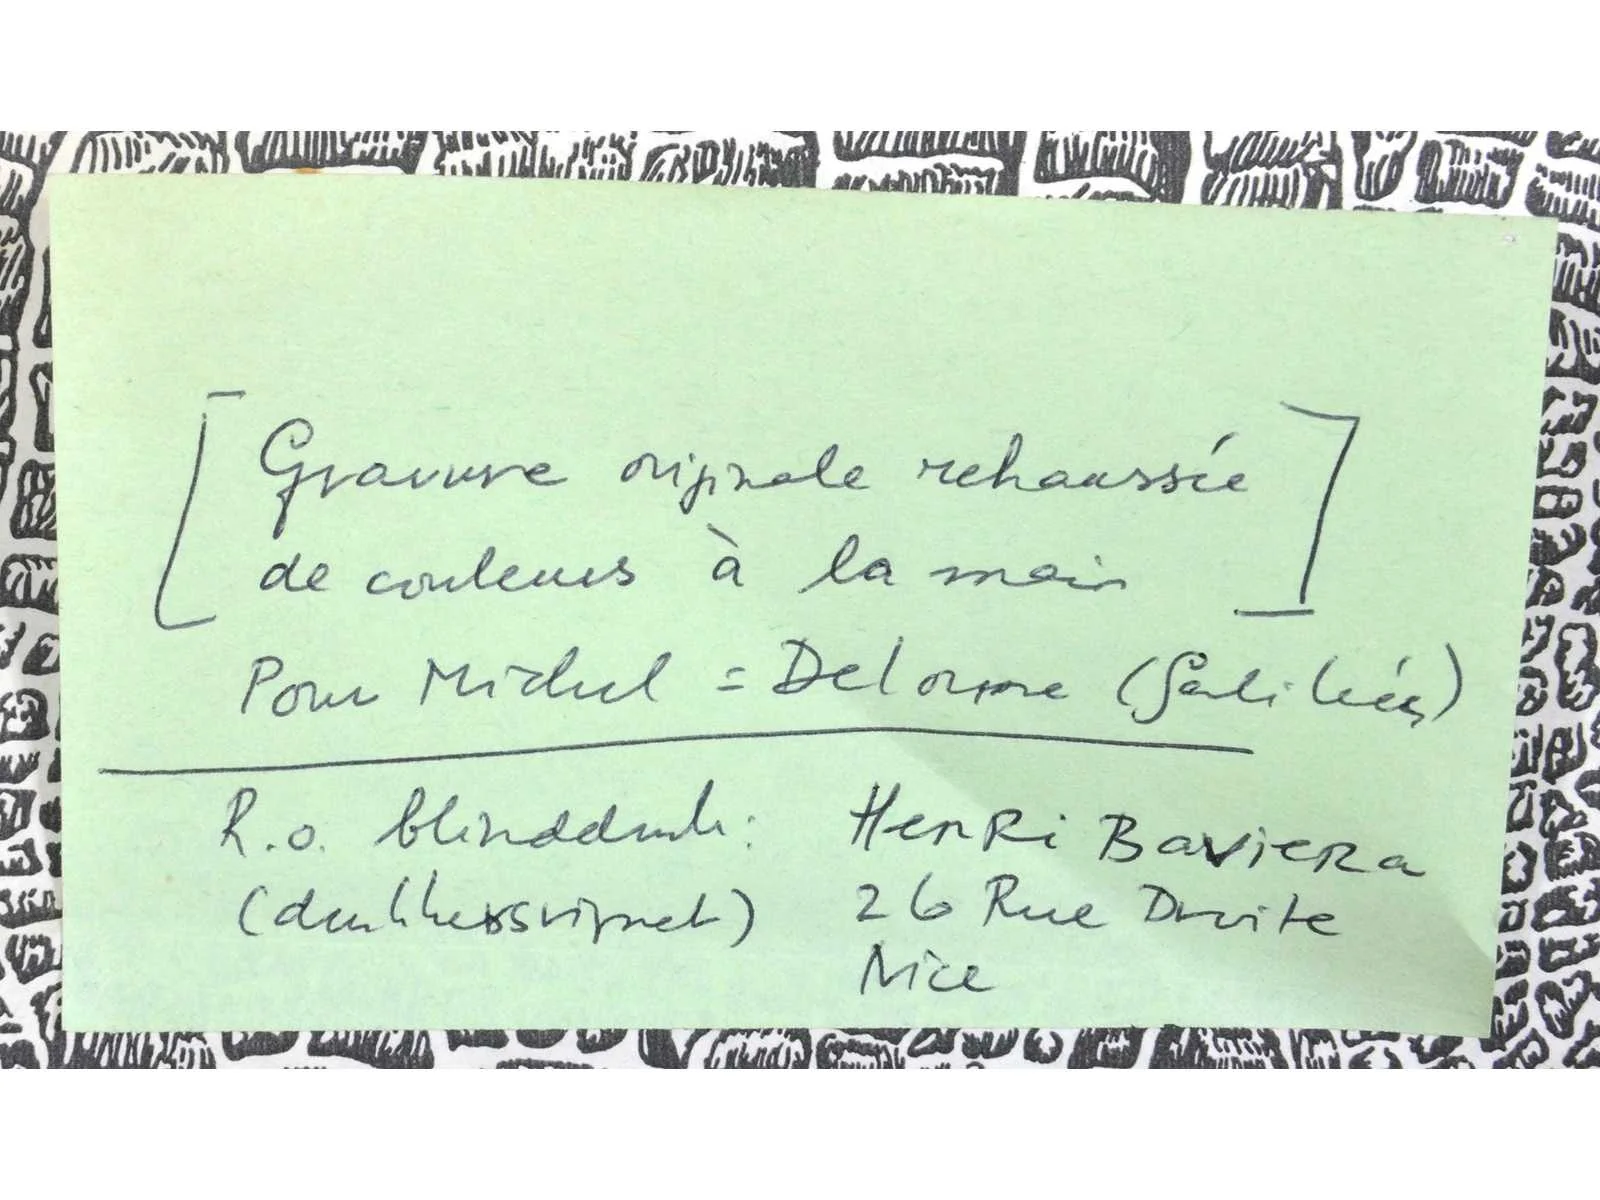 [Gravure originale rehaussée
de couleurs à la main]
Pour Michel = Delorme (Galilée)
R.o. blinddruk: Henri Baviera
(drukkersvignet) 26 Rue Droite
Nice